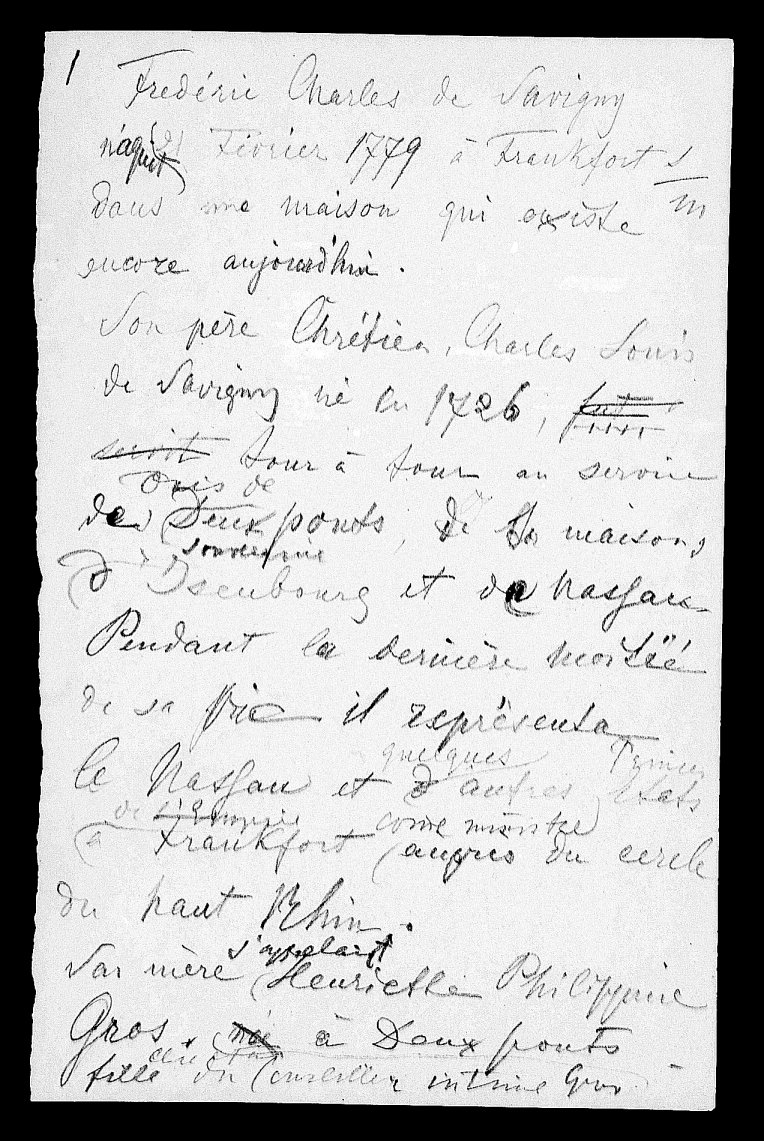 1
Frédéric Charles de Savigny
naquit 21 Février 1779 à Frankfort s/m
dans une maison qui existe
encore aujourd'hui.
Son père Chrétien, Charles Louis
de Savigny né en 1726, fut
servit tour à tour au service
des Deuxponts, de la maisons
souveraine
d'Isenbourg et de Nassau
Pendant la dernière moitié
de sa vie il représenta
quelques
le Nassau et d'autres états
de l'Empire comme ministre
à Frankfort auprès du cercle
du haut Rhin.
s'appelait
Sa mère Henriette Philippine
Gros, née à Deux ponts
fille du Conseiller intime Gros